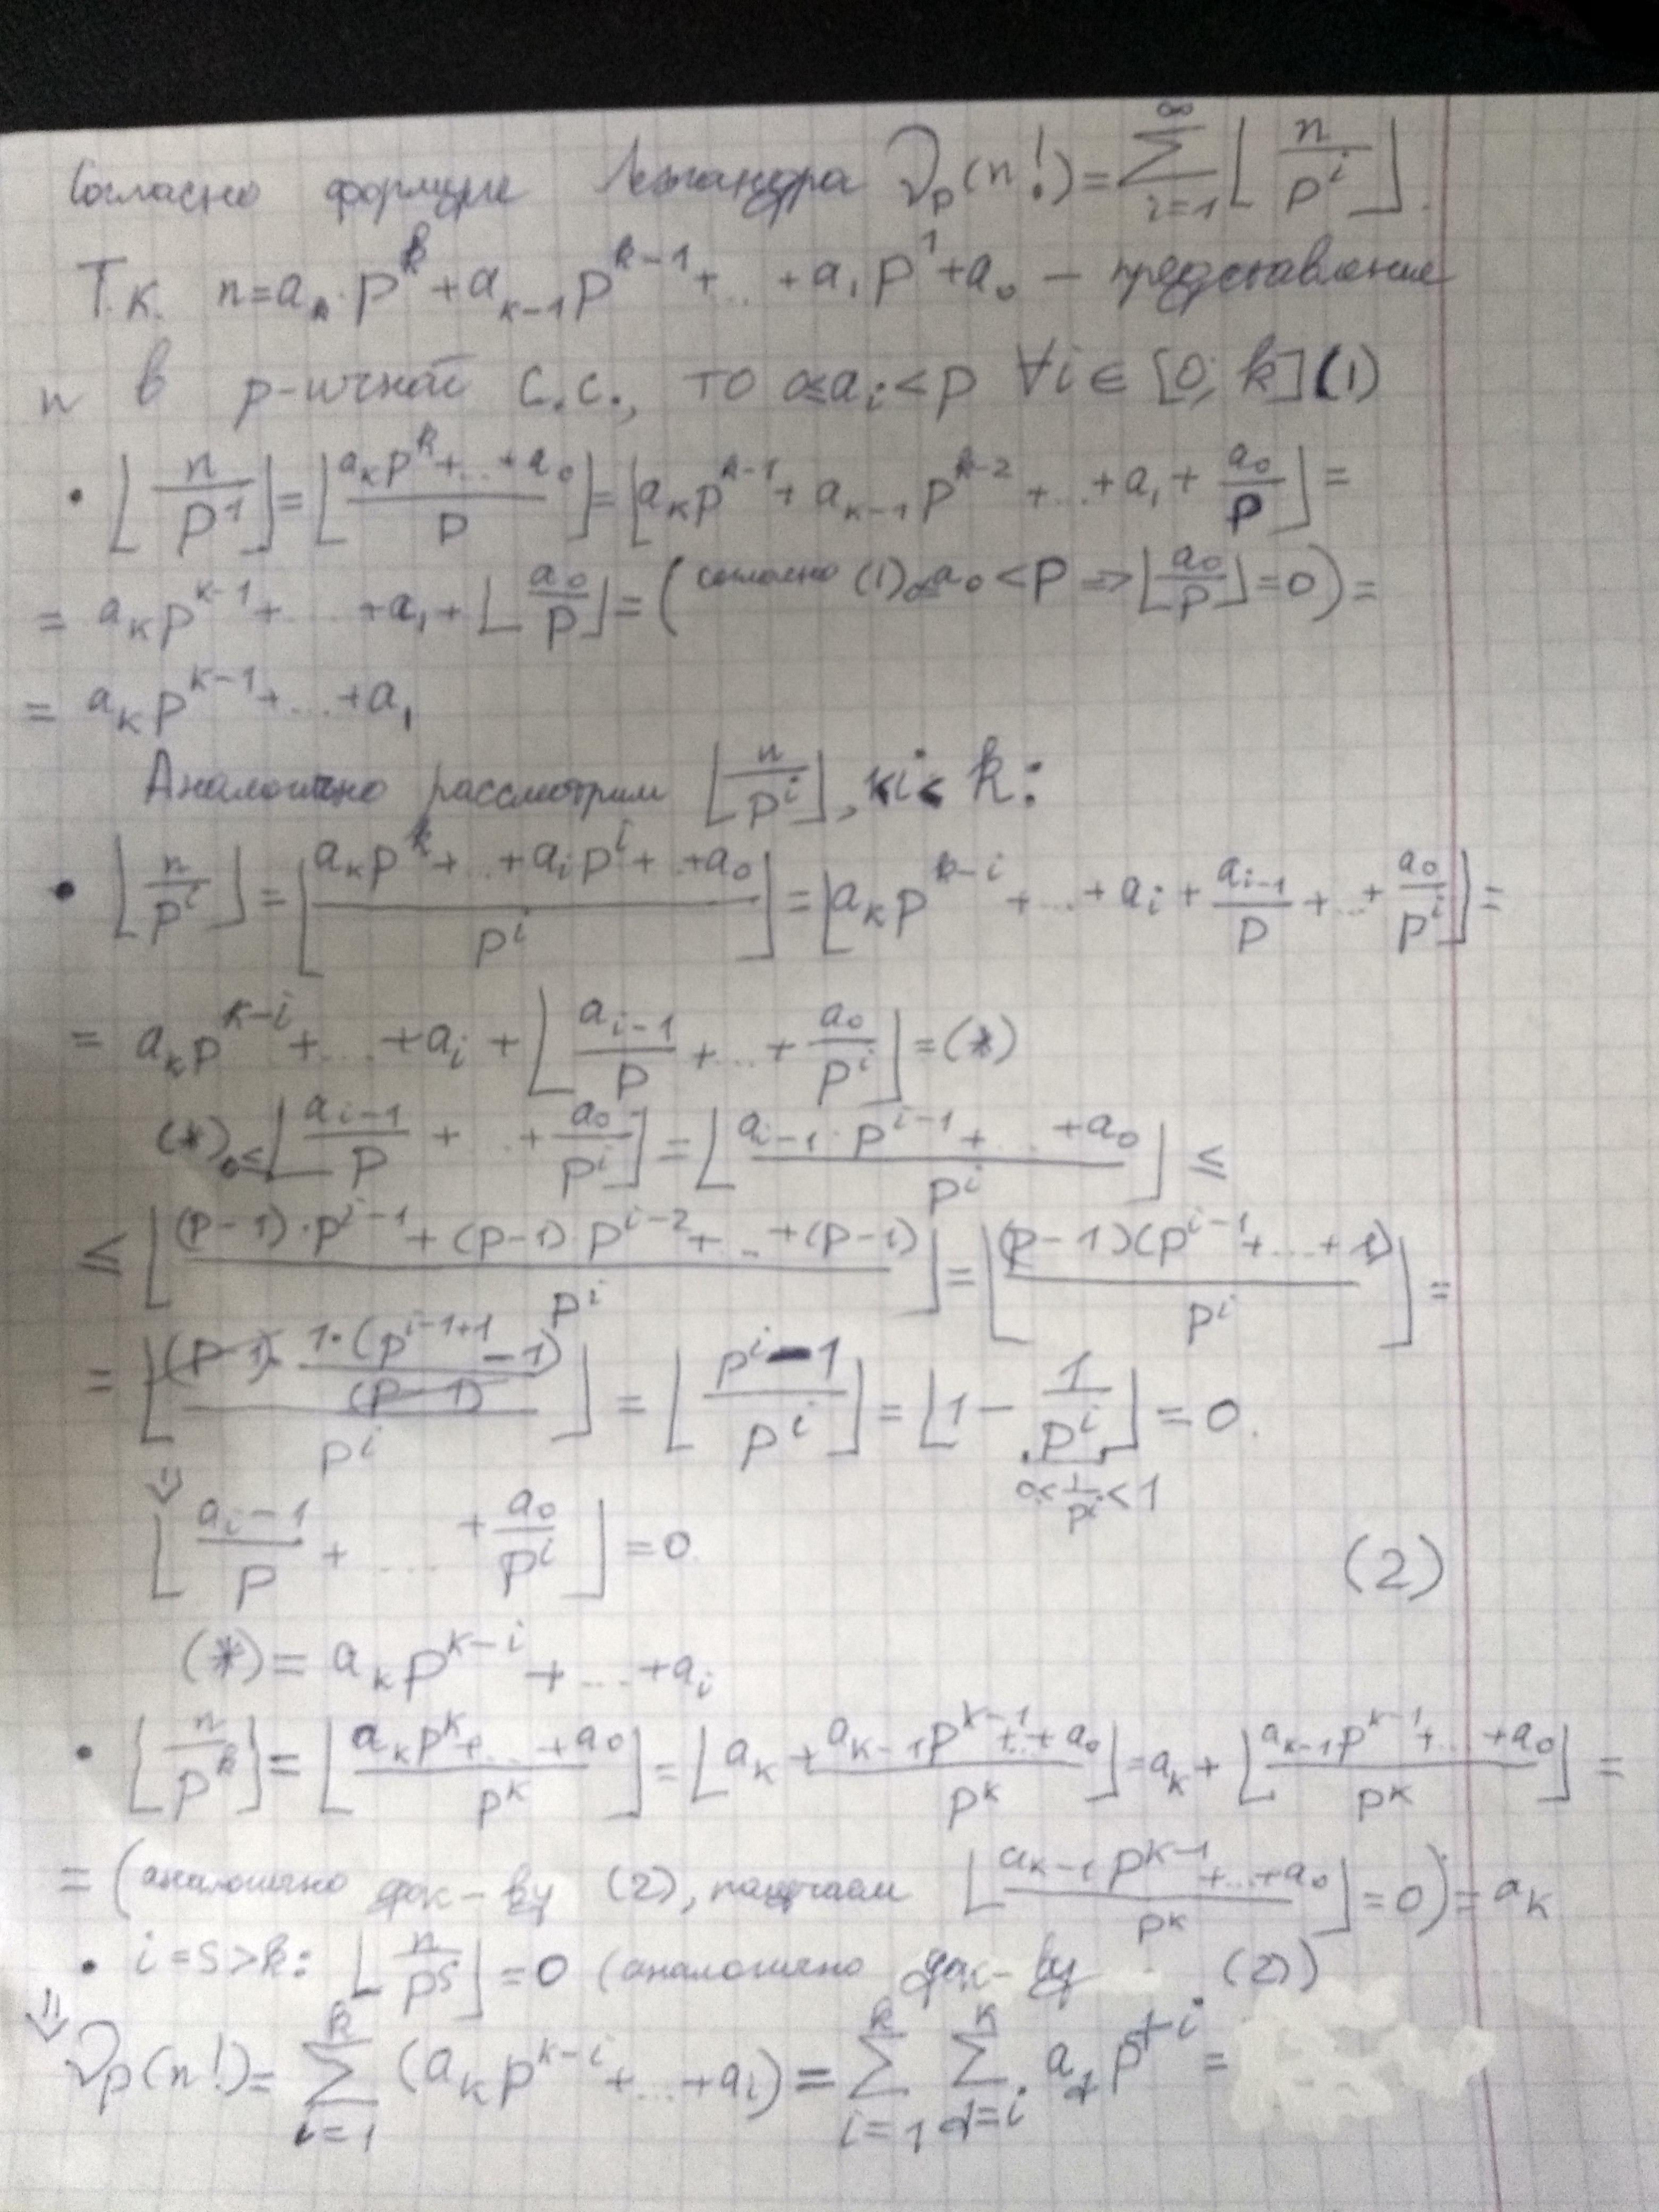 Согласно формуле Лежандра ν_p(n!) = ∑_{i=1}^{∞} ⌊n/p^i⌋.
Т.к. n = a_k·p^k + a_{k-1}p^{k-1} + ... + a_1p^1 + a_0 – представление
n в p-ичной с.с., то 0≤a_i<p ∀i∈[0; k] (1)
• ⌊n/p^1⌋ = ⌊(a_kp^k + ... + a_0)/p⌋ = ⌊a_kp^{k-1} + a_{k-1}p^{k-2} + ... + a_1 + a_0/p⌋ =
= a_kp^{k-1} + ... + a_1 + ⌊a_0/p⌋ = (согласно (1) 0≤a_0<p ⇒ ⌊a_0/p⌋ = 0) =
= a_kp^{k-1} + ... + a_1
Аналогично рассмотрим ⌊n/p^i⌋, 1<i<k:
• ⌊n/p^i⌋ = ⌊(a_kp^k + ... + a_ip^i + ... + a_0)/p^i⌋ = ⌊a_kp^{k-i} + ... + a_i + a_{i-1}/p + ... + a_0/p^i⌋ =
= a_kp^{k-i} + ... + a_i + ⌊a_{i-1}/p + ... + a_0/p^i⌋ = (*)
(*) 0≤⌊a_{i-1}/p + ... + a_0/p^i⌋ = ⌊(a_{i-1}·p^{i-1} + ... + a_0)/p^i⌋ ≤
≤ ⌊((p-1)·p^{i-1} + (p-1)·p^{i-2} + ... + (p-1))/p^i⌋ = ⌊(p-1)(p^{i-1} + ... + 1)/p^i⌋ =
= ⌊((p-1)·1·(p^{i-1+1} - 1)/(p-1))/p^i⌋ = ⌊(p^i - 1)/p^i⌋ = ⌊1 - 1/p^i⌋ = 0.
0<1/p^i<1
⇓
⌊a_{i-1}/p + .... + a_0/p^i⌋ = 0. (2)
(*) = a_kp^{k-i} + ... + a_i
• ⌊n/p^k⌋ = ⌊(a_kp^k + ... + a_0)/p^k⌋ = ⌊a_k + (a_{k-1}p^{k-1} + ... + a_0)/p^k⌋ = a_k + ⌊(a_{k-1}p^{k-1} + ... + a_0)/p^k⌋ =
= (аналогично док-ву (2), получаем ⌊(a_{k-1}p^{k-1} + ... + a_0)/p^k⌋ = 0) = a_k
• i=s>k: ⌊n/p^s⌋ = 0 (аналогично док-ву (2))
⇓
ν_p(n!) = ∑_{i=1}^{k} (a_kp^{k-i} + ... + a_i) = ∑_{i=1}^{k} ∑_{t=i}^{k} a_t p^{t-i} =